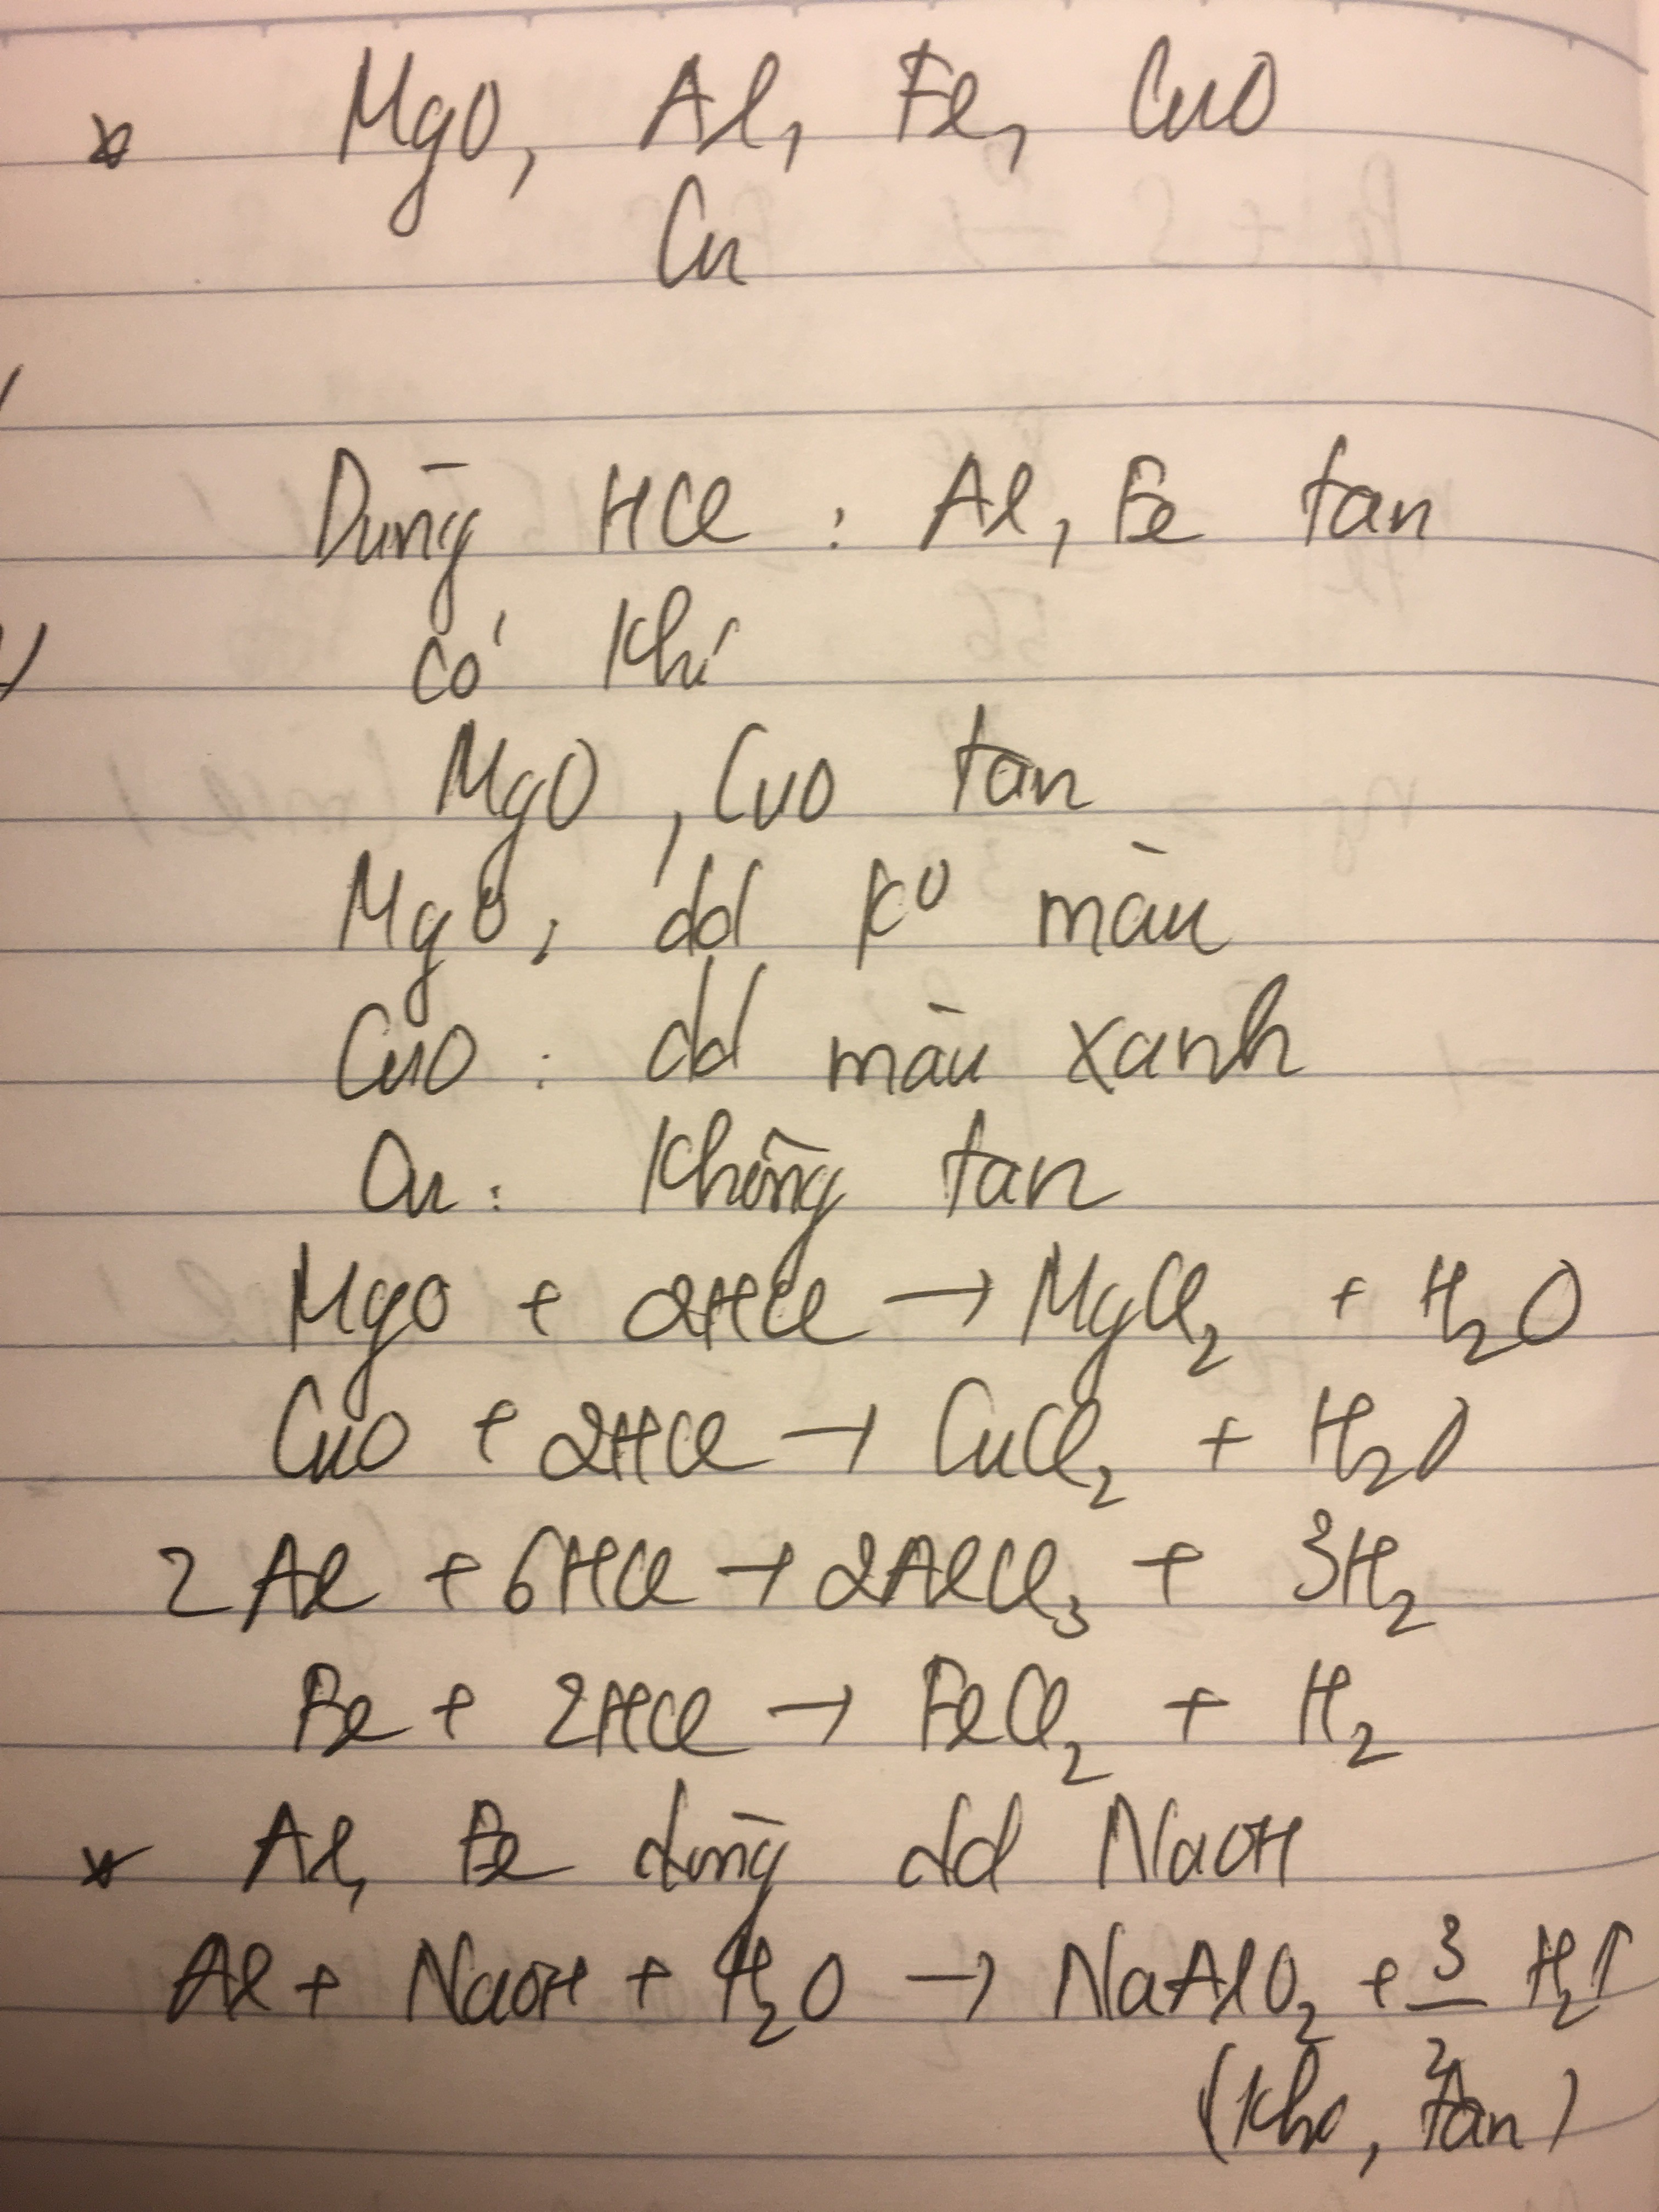 * MgO, Al, Fe, CuO
Cu
Dùng HCl : Al, Fe tan
có khí
MgO, CuO tan
MgO : dd k⁰ màu
CuO : dd màu xanh
Cu : Không tan
MgO + 2HCl → MgCl₂ + H₂O
CuO + 2HCl → CuCl₂ + H₂O
2Al + 6HCl → 2AlCl₃ + 3H₂
Fe + 2HCl → FeCl₂ + H₂
* Al, Fe dùng dd NaOH
Al + NaOH + H₂O → NaAlO₂ + 3/2 H₂↑
(khí, tan)